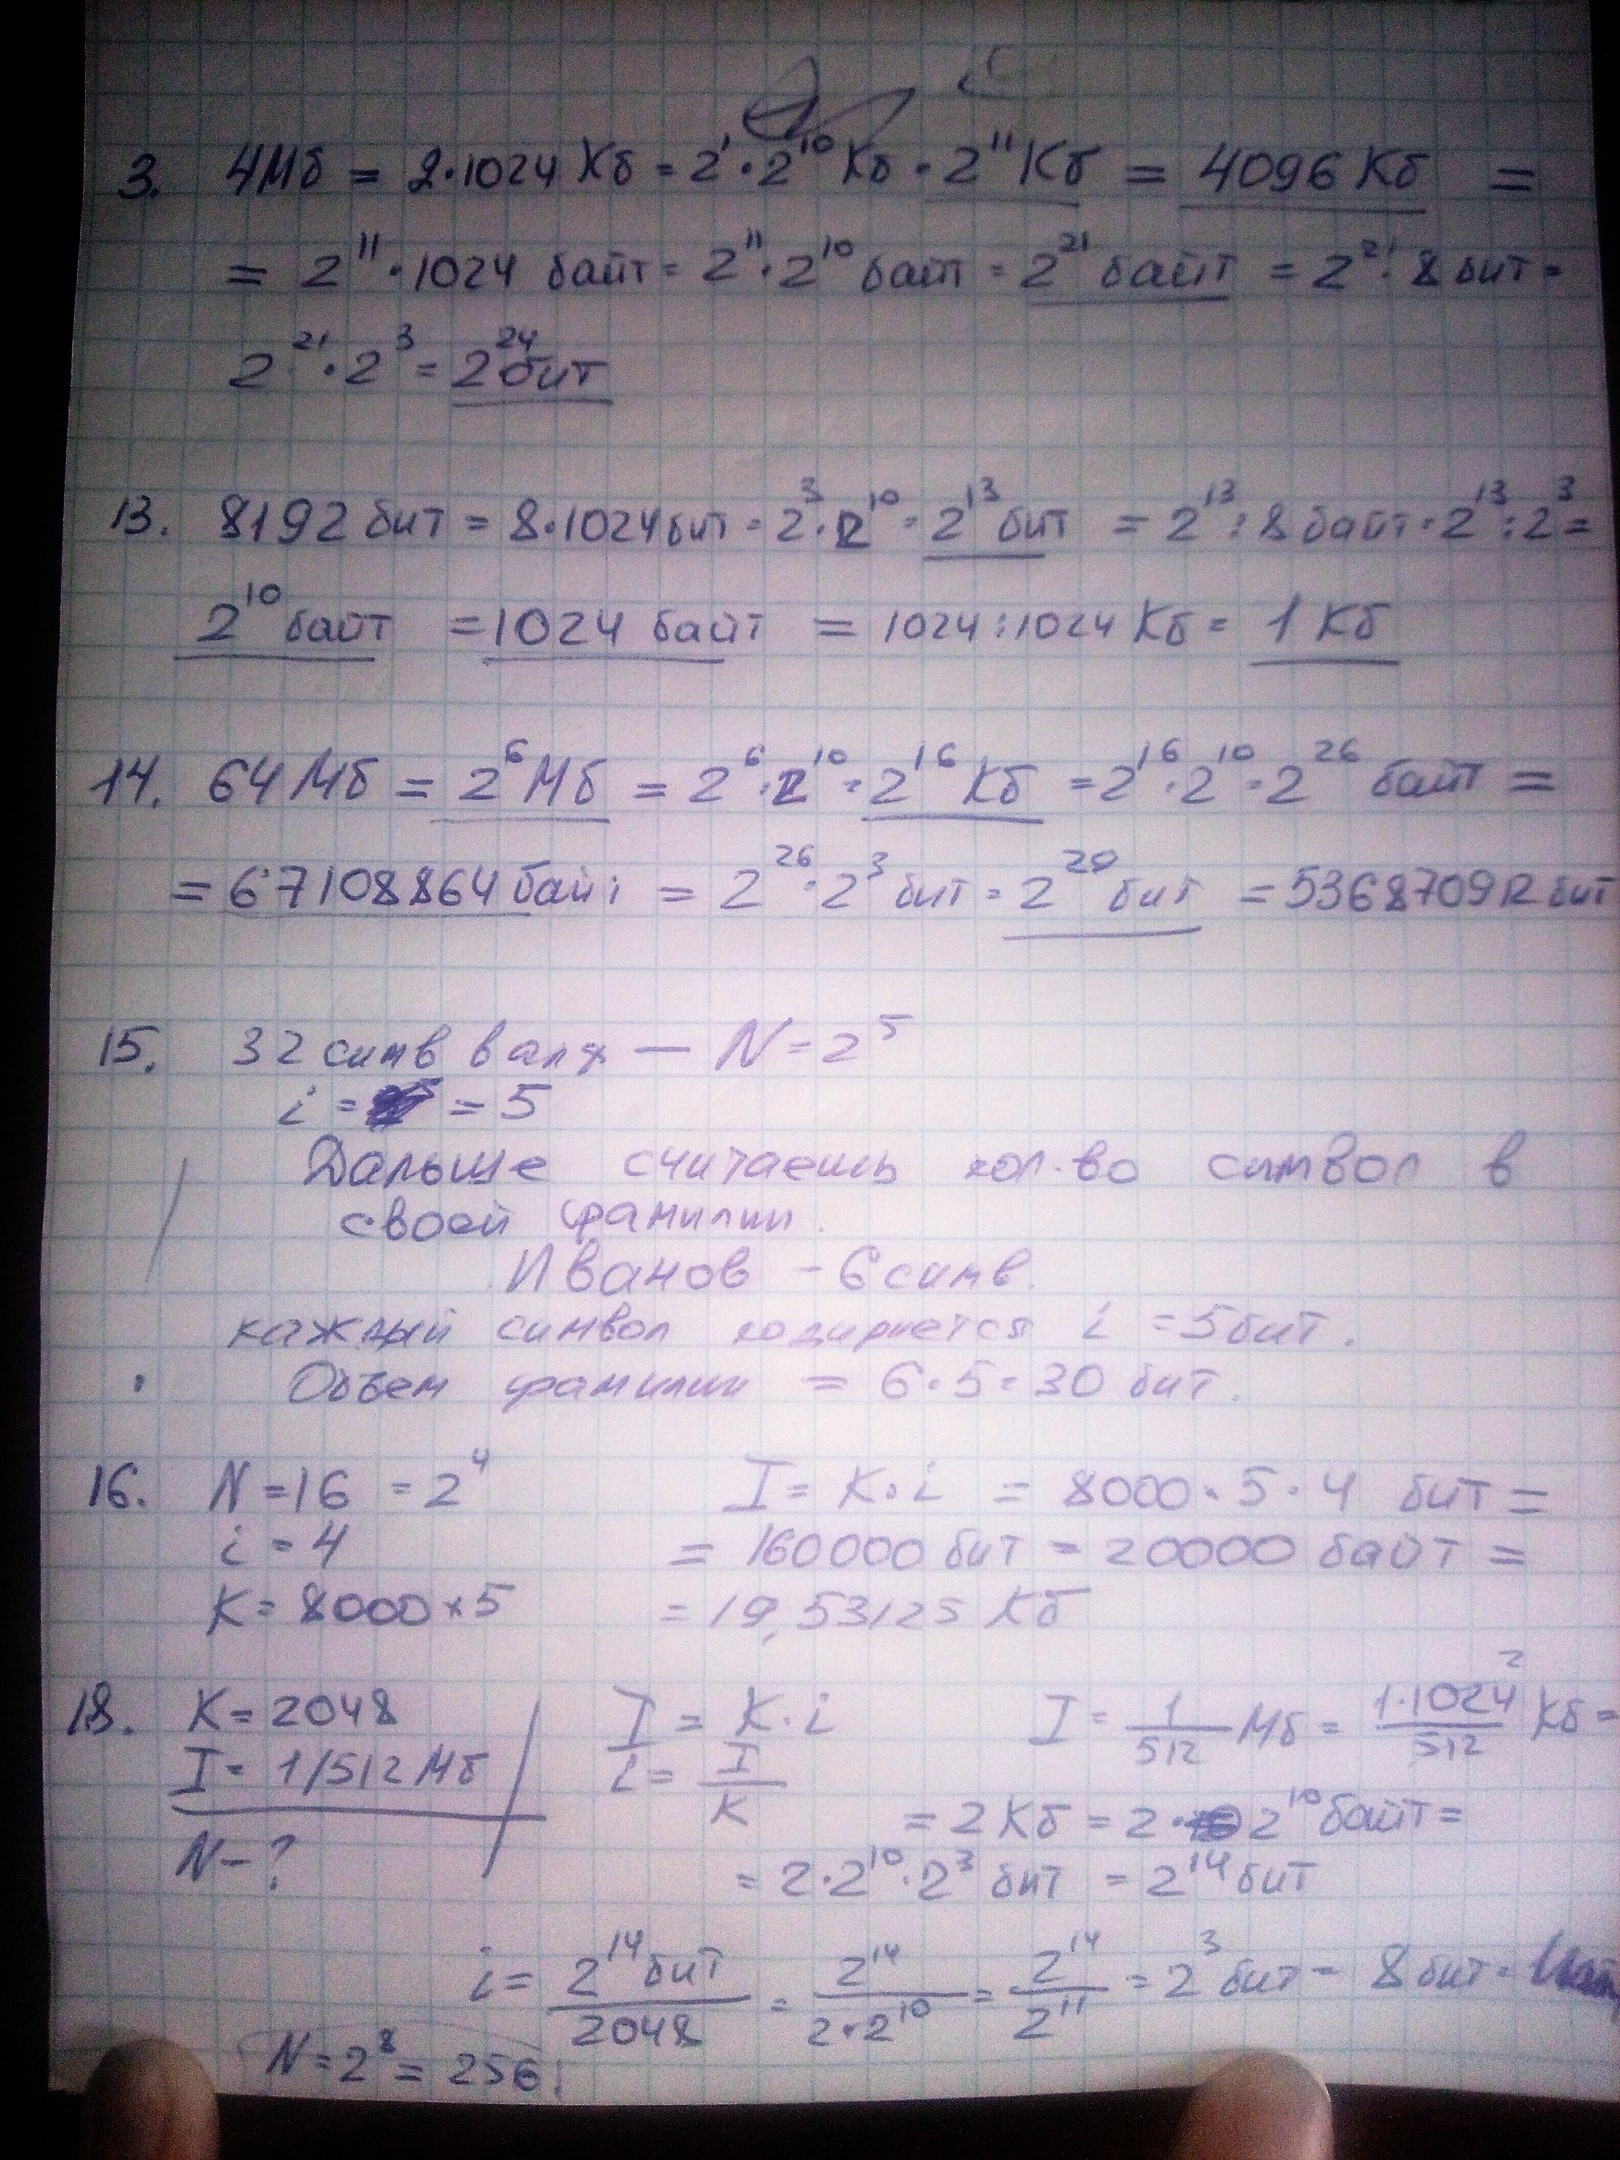 3. 4Мб = 2·1024 Кб = 2¹·2¹⁰ Кб = 2¹¹ Кб = 4096 Кб =
= 2¹¹·1024 байт = 2¹¹·2¹⁰ байт = 2²¹ байт = 2²¹·8 бит =
2²¹·2³ = 2²⁴ бит
13. 8192 бит = 8·1024 бит = 2³·2¹⁰ = 2¹³ бит = 2¹³:8 байт = 2¹³:2³ =
2¹⁰ байт = 1024 байт = 1024:1024 Кб = 1 Кб
14. 64 Мб = 2⁶ Мб = 2⁶·2¹⁰ = 2¹⁶ Кб = 2¹⁶·2¹⁰ = 2²⁶ байт =
= 67108864 байт = 2²⁶·2³ бит = 2²⁹ бит = 536870912 бит
15. 32 симв в алф — N = 2⁵
i = = 5
Дальше считаешь кол-во символ в
своей фамилии.
Иванов - 6 симв.
каждый символ кодируется i = 5 бит.
Объем фамилии = 6·5 = 30 бит.
16. N = 16 = 2⁴ I = K·i = 8000·5·4 бит =
i = 4 = 160000 бит = 20000 байт =
K = 8000×5 = 19,53125 Кб
18. K = 2048 I = K·i I = 1/512 Мб = 1·1024²/512 Кб =
I = 1/512 Мб i = I/K
= 2 Кб = 2· 2¹⁰ байт =
N - ?
= 2·2¹⁰·2³ бит = 2¹⁴ бит
i = 2¹⁴ бит/2048 = 2¹⁴/2·2¹⁰ = 2¹⁴/2¹¹ = 2³ бит = 8 бит =
N = 2⁸ = 256